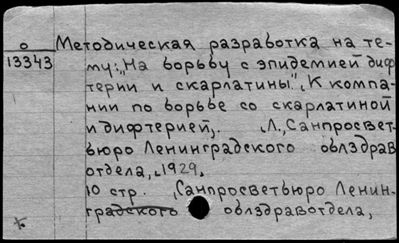 о Методическая разработка на те-
13343 му: „На борьбу с эпидемией диф
терии и скарлатины", К компа-
нии по борьбе со скарлатиной
и дифтерией,. Л., Санпросвет-
бюро Ленинградского облздрав
отдела, 1929,
10 стр. , Санпросветбюро Ленин-
градского облздравотдела,